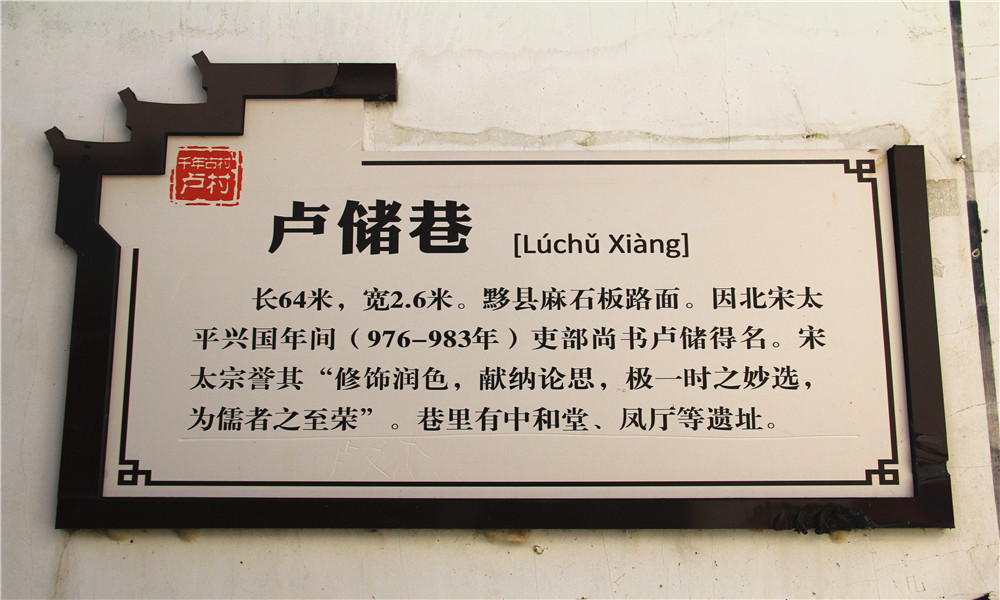 千年古村
卢村
卢储巷 [Lúchǔ Xiàng]
长64米，宽2.6米。黟县麻石板路面。因北宋太
平兴国年间（976-983年）吏部尚书卢储得名。宋
太宗誉其“修饰润色，献纳论思，极一时之妙选，
为儒者之至荣”。巷里有中和堂、凤厅等遗址。